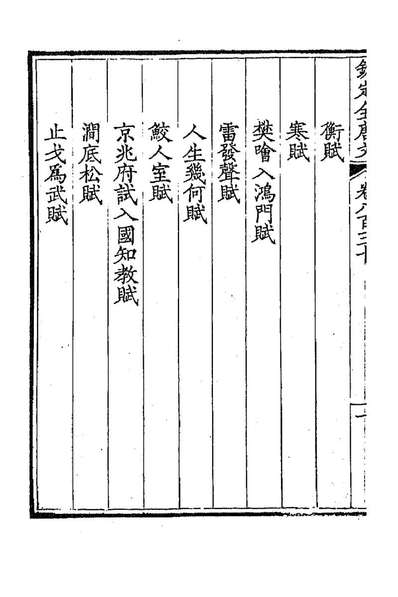 欽定全唐文 卷八百三十 一
衡賦
寒賦
樊噲入鴻門賦
雷發聲賦
人生幾何賦
鮫人室賦
京兆府試入國知教賦
澗底松賦
止戈為武賦